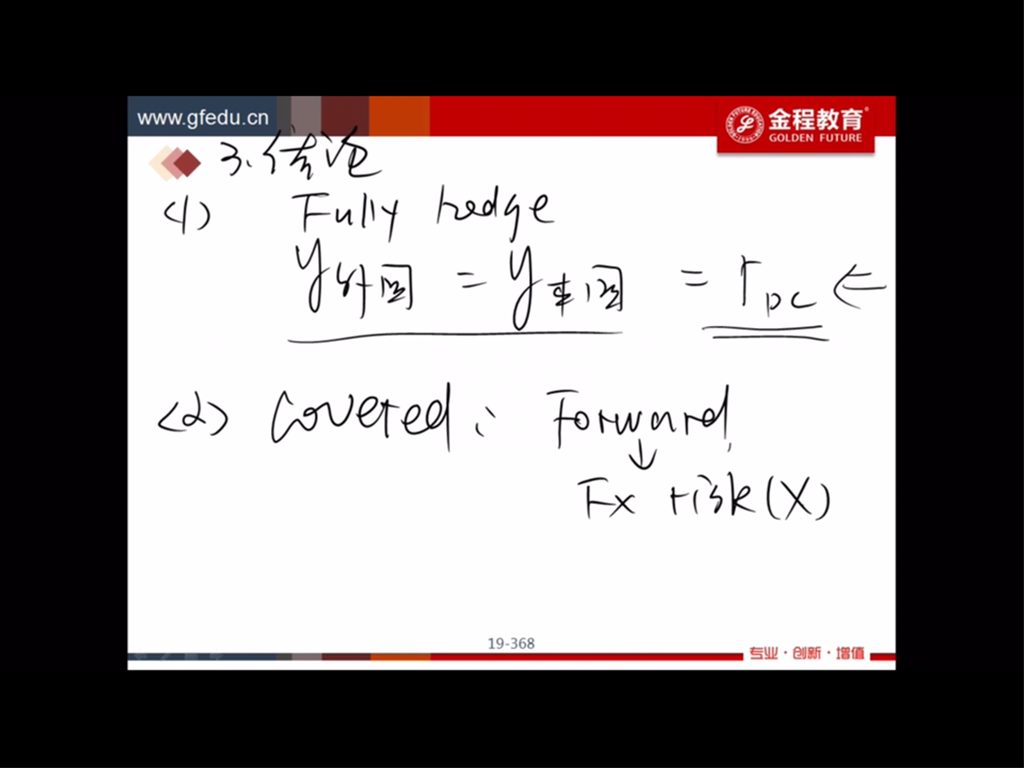 www.gfedu.cn
金程教育
GOLDEN FUTURE
3. 结论
(1) Fully hedge
y外国 = y本国 = rDC ⇐
(2) Covered: Forward
↓
Fx risk (X)
19-368
专业·创新·增值